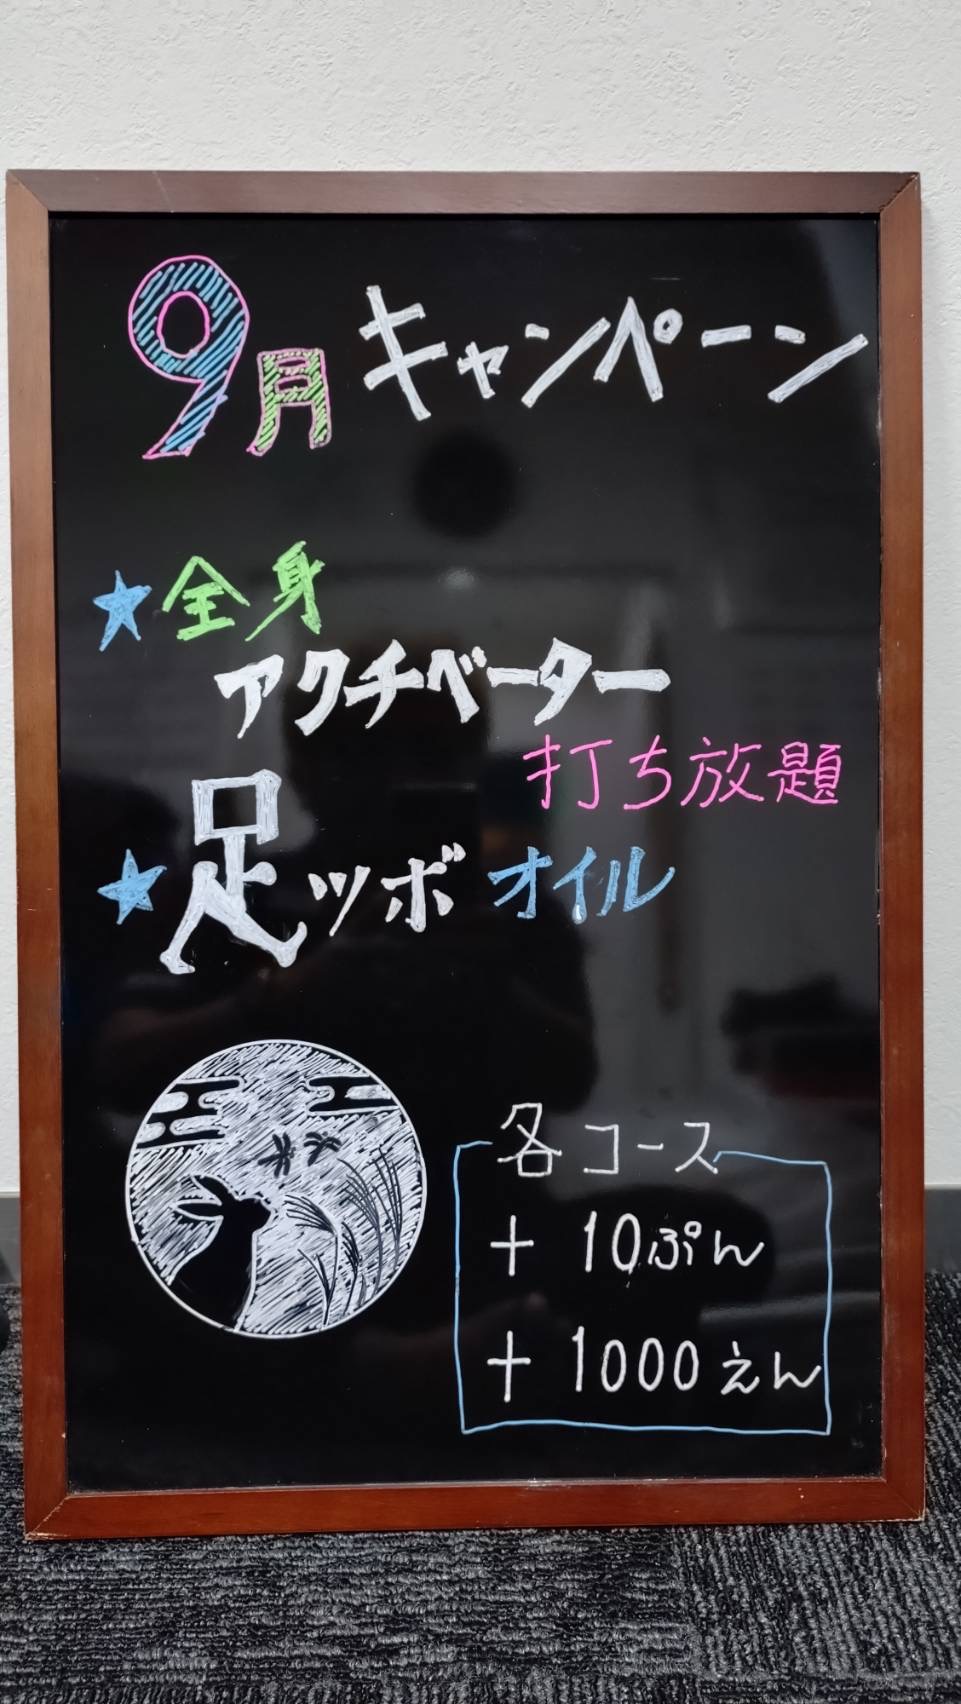 9月 キャンペーン
★全身
アクチベーター
打ち放題
★足ツボ オイル
各コース
+ 10ぷん
+ 1000えん